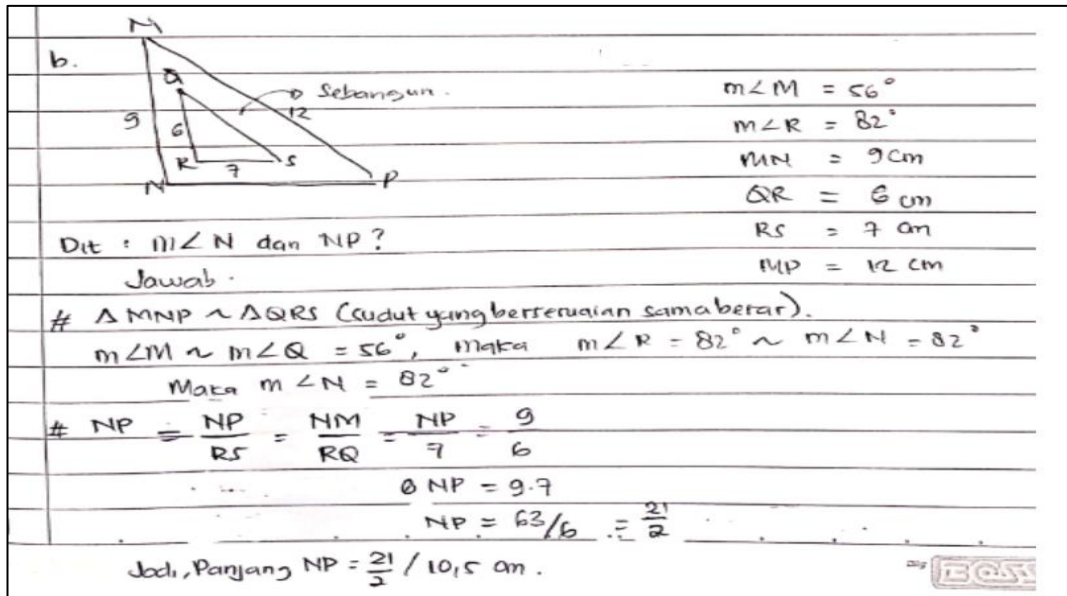 b.
M
Q
9
6
R
7
S
N
P
12
Sebangun.
m∠M = 56°
m∠R = 82°
MN = 9 cm
QR = 6 cm
RS = 7 cm
MP = 12 cm
Dit : m∠N dan NP?
Jawab.
# ΔMNP ~ ΔQRS (sudut yang bersesuaian sama besar).
m∠M ~ m∠Q = 56°, maka m∠R = 82° ~ m∠N = 82°
Maka m∠N = 82°
# NP = NP/RS = NM/RQ = NP/7 = 9/6
6 NP = 9.7
NP = 63/6 = 21/2
Jadi, Panjang NP = 21/2 / 10,5 cm.